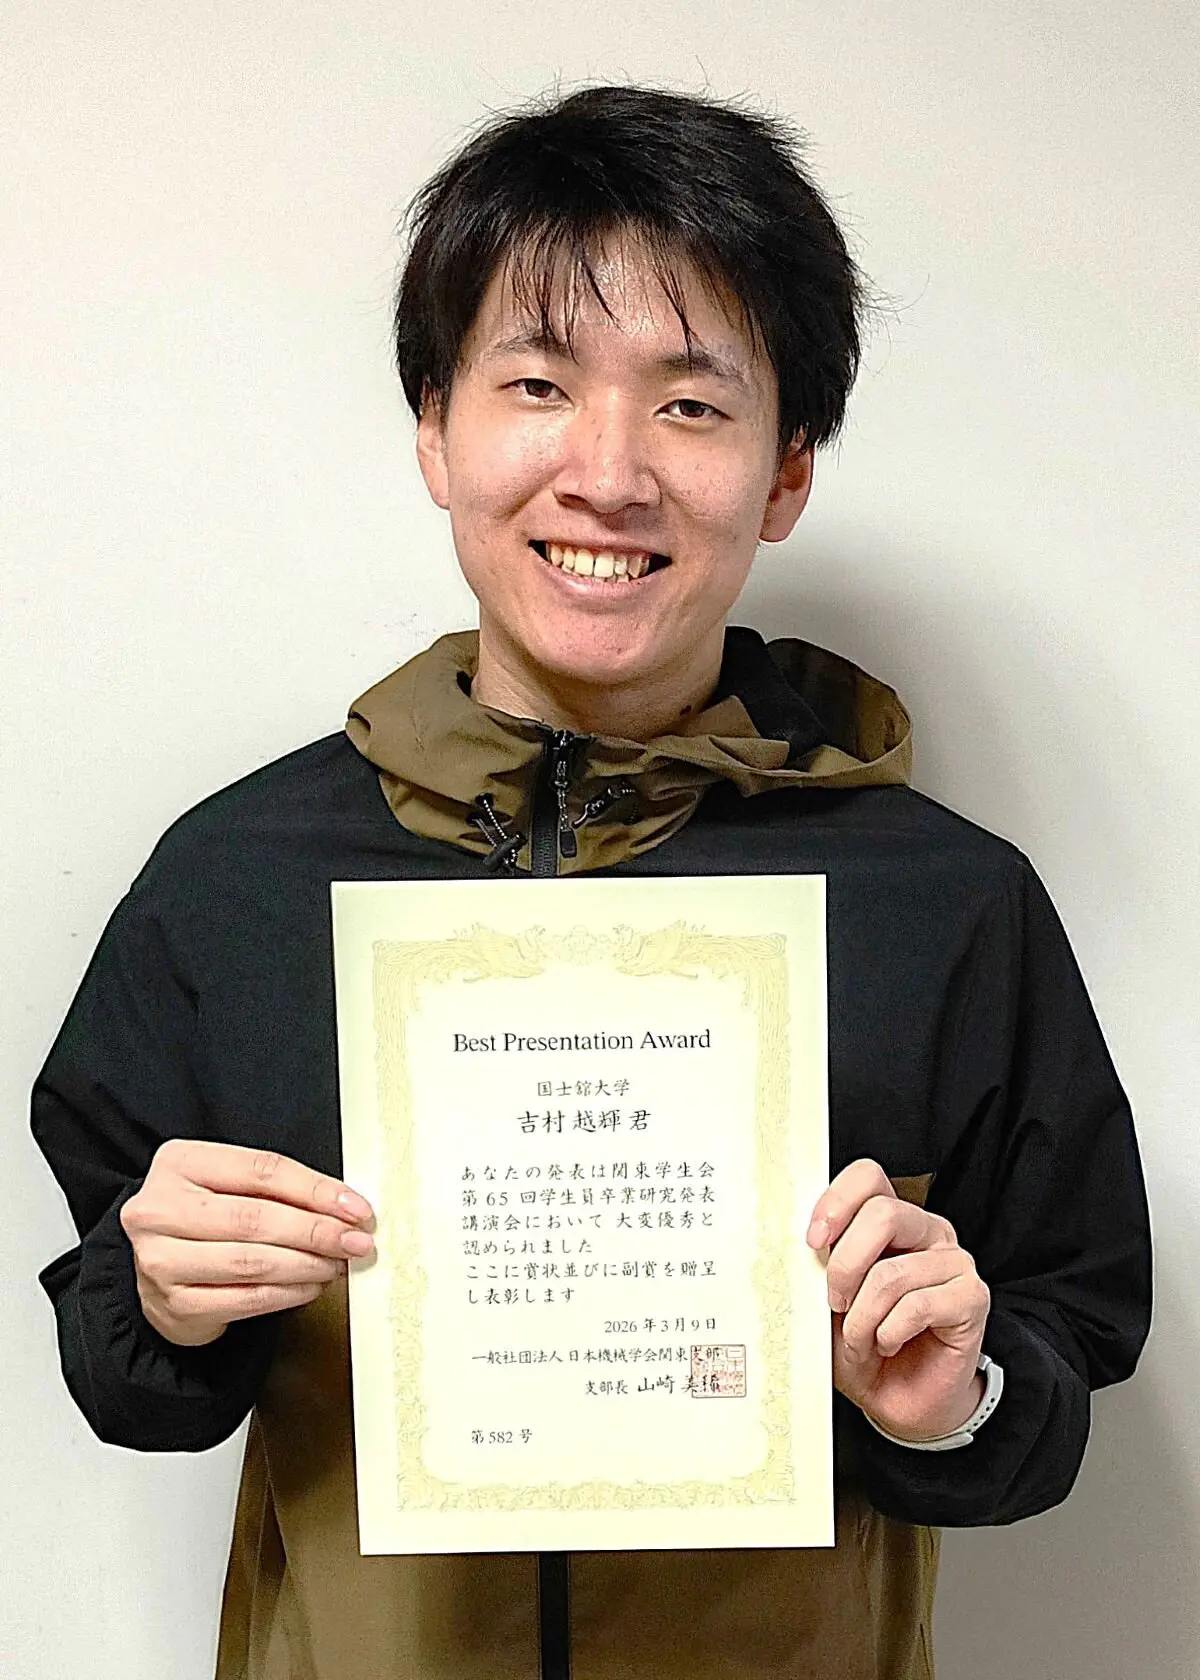 Best Presentation Award
国士舘大学
吉村 越輝 君
あなたの発表は関東学生会
第 65 回学生員卒業研究発表
講演会において 大変優秀と
認められました
ここに賞状並びに副賞を贈呈
し表彰します
2026 年 3 月 9 日
一般社団法人 日本機械学会関東支部
支部長 山崎 美稀
第 582 号